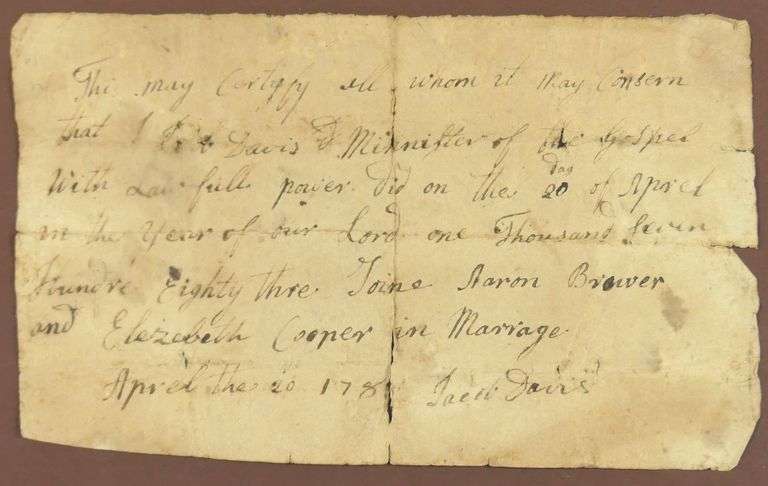 Thi may Certyfy all whom it may Consern
that I Davis Minnister of the Gospel
With Lawfull power Did on the 20 day of Aprel
in the Year of our Lord one Thousand Seven
houndre Eighty thre Joine Aaron Brewer
and Elezebeth Cooper in Marrage
Aprel the 20 178 Davis